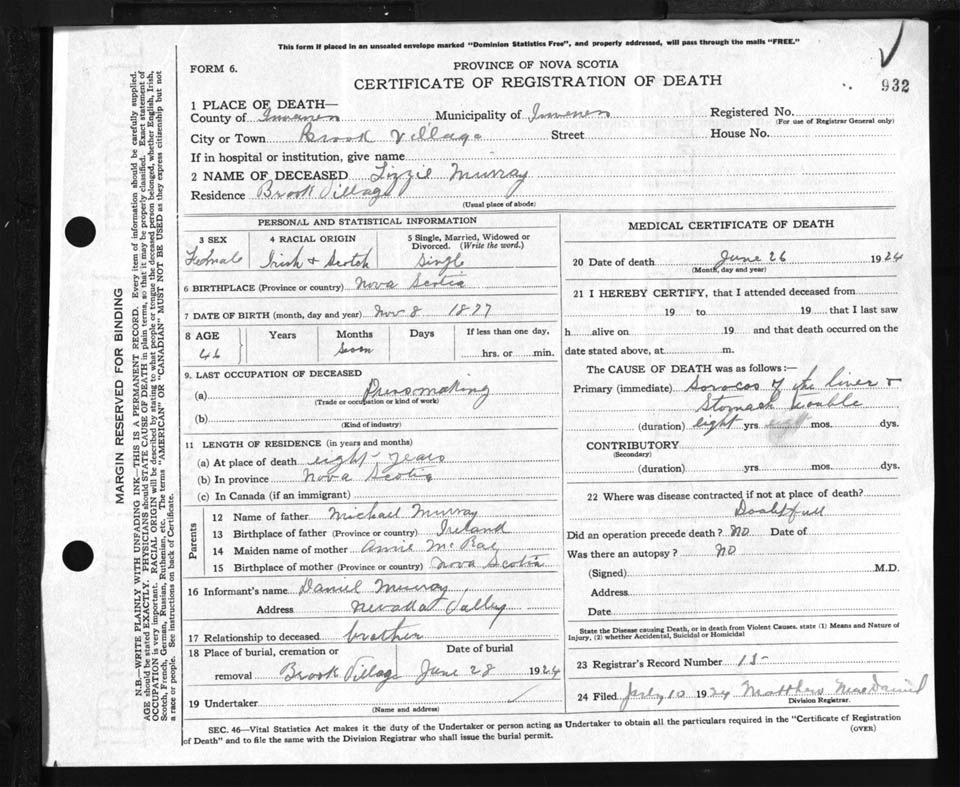 This form if placed in an unsealed envelope marked "Dominion Statistics Free", and properly addressed, will pass through the mails "FREE."
FORM 6.
PROVINCE OF NOVA SCOTIA
CERTIFICATE OF REGISTRATION OF DEATH
932
1 PLACE OF DEATH—
County of Inverness Municipality of Inverness Registered No.
(For use of Registrar General only)
City or Town Brook Village Street House No.
If in hospital or institution, give name
2 NAME OF DECEASED Lizzie Murray
Residence Brook Village
(Usual place of abode)
PERSONAL AND STATISTICAL INFORMATION
3 SEX 4 RACIAL ORIGIN 5 Single, Married, Widowed or Divorced. (Write the word.)
Female Irish + Scotch Single
6 BIRTHPLACE (Province or country) Nova Scotia
7 DATE OF BIRTH (month, day and year) Nov 8 1877
8 AGE Years Months Days If less than one day,
46 Seven hrs. or min.
9. LAST OCCUPATION OF DECEASED
(a) Dressmaking
(Trade or occupation or kind of work)
(b)
(Kind of industry)
11 LENGTH OF RESIDENCE (in years and months)
(a) At place of death eight years
(b) In province Nova Scotia
(c) In Canada (if an immigrant)
Parents
12 Name of father Michael Murray
13 Birthplace of father (Province or country) Ireland
14 Maiden name of mother Annie McRae
15 Birthplace of mother (Province or country) Nova Scotia
16 Informant's name Daniel Murray
Address Nevada Valley
17 Relationship to deceased brother
18 Place of burial, cremation or Date of burial
removal Brook Village June 28 1924
19 Undertaker
(Name and address)
MEDICAL CERTIFICATE OF DEATH
20 Date of death June 26 1924
(Month, day and year)
21 I HEREBY CERTIFY, that I attended deceased from
19 to 19 that I last saw
h alive on 19 and that death occurred on the
date stated above, at m.
The CAUSE OF DEATH was as follows:—
Primary (immediate) Sorocas of the liver +
Stomach trouble
(duration) eight yrs. mos. dys.
CONTRIBUTORY
(Secondary)
(duration) yrs. mos. dys.
22 Where was disease contracted if not at place of death?
Doubtfull
Did an operation precede death? No Date of
Was there an autopay? No
(Signed) M.D.
Address
Date
State the Disease causing Death, or in death from Violent Causes, state (1) Means and Nature of
Injury, (2) whether Accidental, Suicidal or Homicidal
23 Registrar's Record Number 15
24 Filed July 10 1924 Matthew MacDaniel
Division Registrar.
SEC. 46—Vital Statistics Act makes it the duty of the Undertaker or person acting as Undertaker to obtain all the particulars required in the "Certificate of Registration
of Death" and to file the same with the Division Registrar who shall issue the burial permit.
(OVER)
MARGIN RESERVED FOR BINDING
N.B.—WRITE PLAINLY WITH UNFADING INK—THIS IS A PERMANENT RECORD. Every item of information should be carefully supplied.
AGE should be stated EXACTLY. PHYSICIANS should STATE CAUSE OF DEATH in plain terms, so that it may be properly classified. Exact statement of
OCCUPATION is very important. RACIAL ORIGIN will be described by stating to what people or tongue the deceased person belonged, whether English, Irish,
Scotch, French, German, Russian, Ruthenian, etc. The terms "AMERICAN" OR "CANADIAN" MUST NOT BE USED as they express citizenship but not
a race or people. See instructions on back of Certificate.